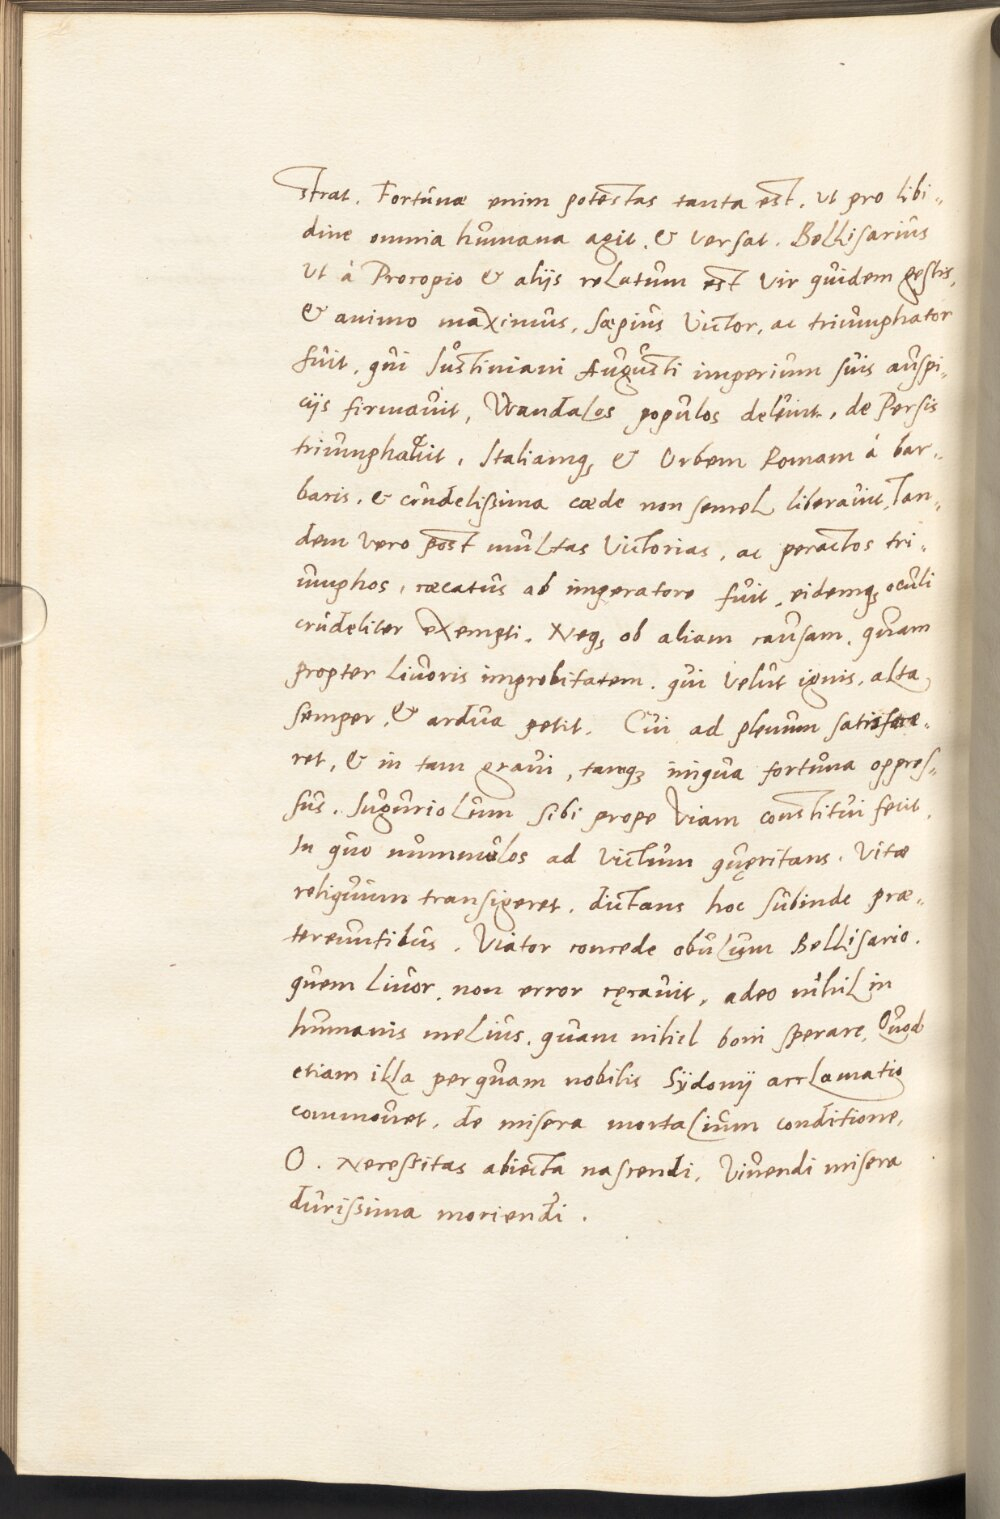 strat. Fortunæ enim potestas tanta est, ut pro libi-
dine omnia humana agit, & versat. Bellisarius
ut à Procopio & aliis relatum est vir quidem gestis,
& animo maximus, sæpius victor, ac triumphator
fuit, qui Iustiniani Augusti imperium suis auspi-
ciis firmavit, Wandalos populos delevit, de Persis
triumphavit, Italiamq; & Urbem Romam à bar-
baris, & crudelissima cæde non semel liberavit, Tan-
dem vero post multas victorias, ac peractos tri-
umphos, cæcatus ab imperatore fuit, eidemq; oculi
crudeliter exempti. Neq; ob aliam causam, quam
propter livoris improbitatem, qui velut ignis, alta
semper, & ardua petit. Cui ad plenum satisface-
ret, & in tam gravi, tamq; iniqua fortuna oppres-
sus. Tuguriolum sibi prope viam constitui fecit,
In quo nummulos ad victum quęritans. Vitæ
reliquium transigeret, dictans hoc subinde præ-
tereuntibus. Viator concede obulum Bellisario.
quem livor, non error cęcavit, adeo nihil in
humanis melius, quam nihil boni sperare, Quod
etiam illa perquam nobilis Sÿdonij acclamatio
commovet, de misera mortalium conditione,
O. Necessitas abiecta nascendi, Vivendi misera
durissima moriendi.